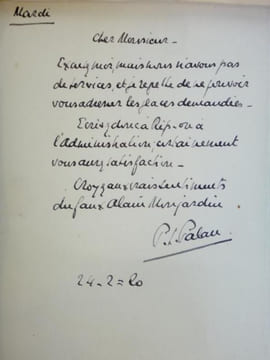 Mardi
Cher Monsieur -
Excusez moi mais nous n'avons pas
de services, et je regrette de ne pouvoir
vous adresser les places demandées -
Ecrivez donc à
l'administration, certainement
vous aurez satisfaction -
Croyez aux vrais sentiments
du faux Alain Monjardin
P. L. Palau
24-2=20